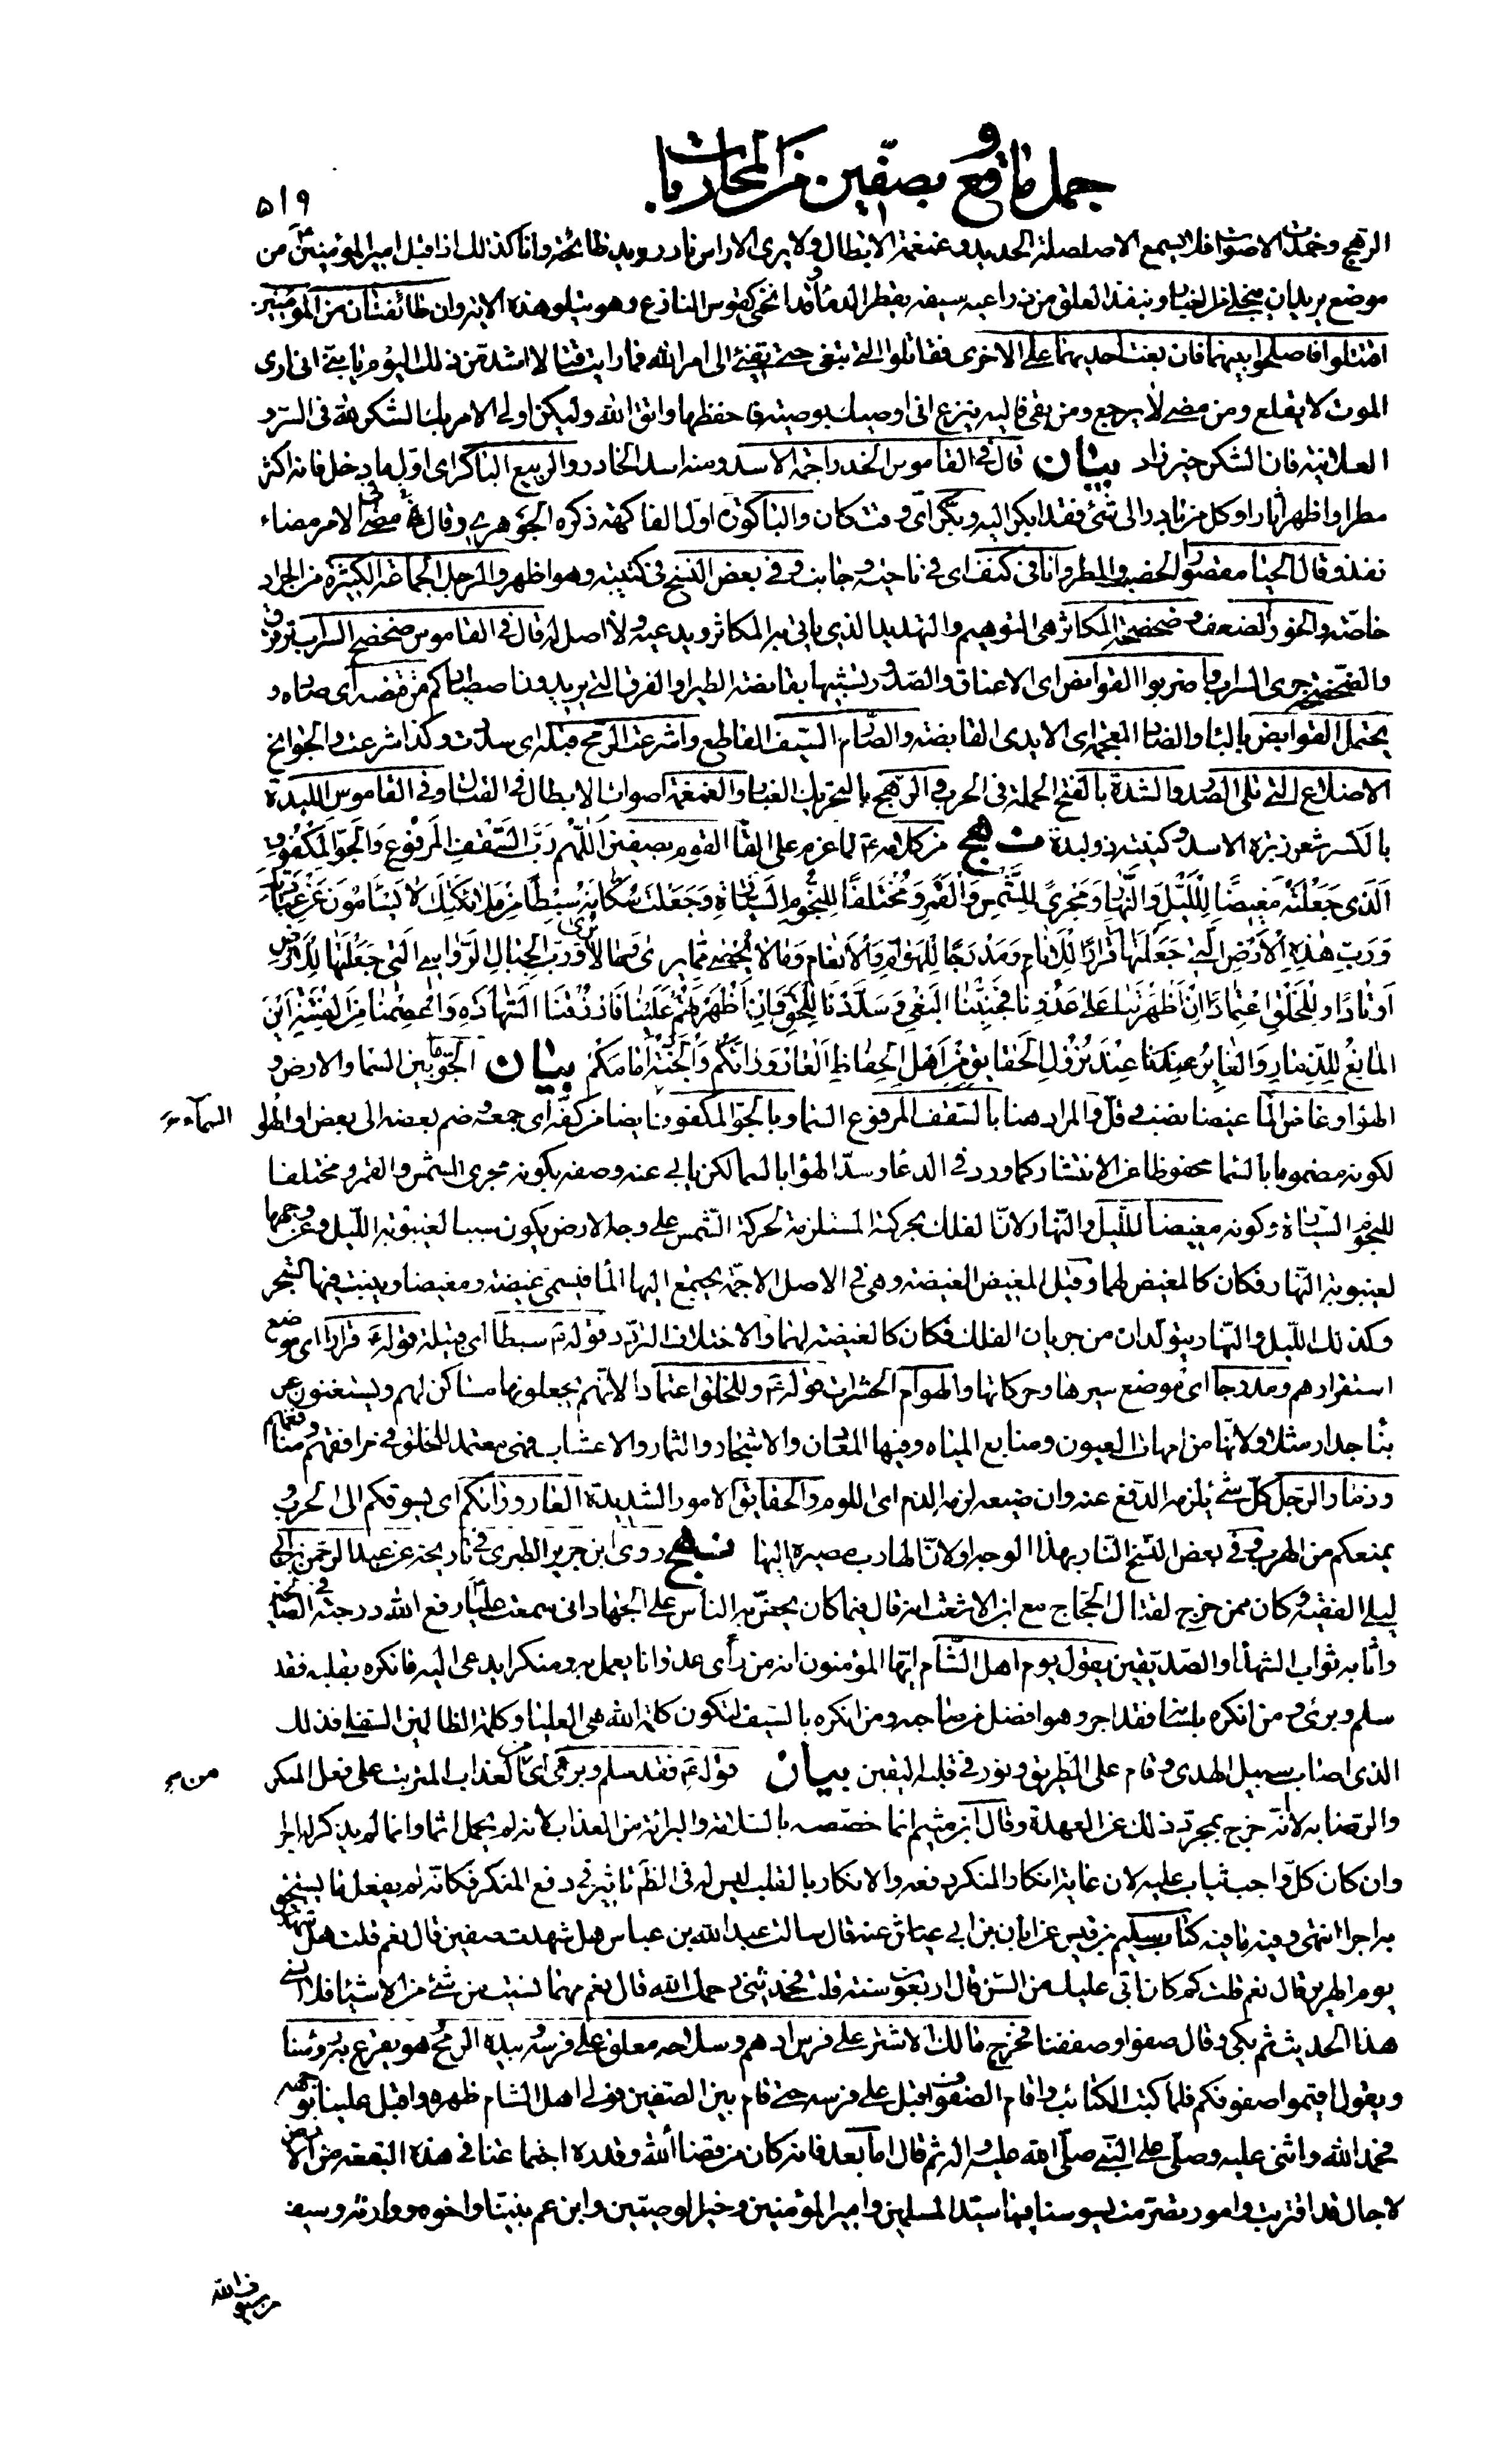 جمل ما وقع بصفّين من المحاربات
٥١٩
الرهج وخمدت الاصوات فلا يسمع الا صلصلة الحديد وغمغمة الابطال ولا يرى الا راس نادر ويد طائحة وانا كذلك اذ اقبل امير المؤمنين ع من
موضع يريد ان ينجلى من الغبار وينفذ العلق من ذراعيه سيفه يقطر الدماء وقد انحنى كقوس النازع وهو يتلو هذه الاية وان طائفتان من المؤمنين
اقتتلوا فاصلحوا بينهما فان بغت احديهما على الاخرى فقاتلوا التى تبغى حتى تفئ الى امر الله فما رايت قتالا اشد من ذلك اليوم يا بنى انى ارى
الموت لا يقلع ومن مضى لا يرجع ومن بقى فاليه ينزع انى اوصيك بوصية فاحفظها واتق الله وليكن اولى الامر بك الشكر لله فى السر و
العلانية فان الشكر خير زاد بيان قال فى القاموس الخدر اجمة الاسد ومنه اسد الخادر والربيع الباكر اى اوّل ما يدخل فانه اكثر
مطرا واظهر اثارا وكل من بادر الى شئ فقد ابكر اليه وبكّر اىّ وقت كان والباكورة اول الفاكهة ذكره الجوهرى وقال مضى فى الامر مضاء
نفذ وقال الحيا مقصور الخصب والمطر وانا فى كنف اى فى ناحية وجانب وفى بعض النسخ فى كتيبة وهو اظهر والرجل الجماعة الكثيرة من الجراد
خاصّة والخور الضعف وضحضحة المكاثر هى التوهيم والتهديد الذى ياتى به المكاثر ويدعيه ولا اصل له قال فى القاموس ضحضح السراب ترقرق
والضحضحة جرى السراب واضربوا القوامص اى الاعناق والصدور
يحتمل القوابض بالباء والضاد المعجمة اى الايدى القابضة والصارم السيف القاطع واشرعت الرمح قبله اى سددت وكذا شرعت والجوانح
الاضلاع التى تلى الصدر والشدة بالفتح الحملة فى الحرب والرهج بالتحريك الغبار والغمغمة اصوات الابطال فى القتال وفى القاموس اللبدة
بالكسر شعر زبرة الاسد وكنيته ذو لبدة نهج من كلامه ع لما عزم على لقاء القوم بصفين اَللّهُمَّ رَبَّ السَّقْفِ الْمَرْفُوعِ وَالْجَوِّ الْمَكْفُوفِ
اَلَّذى جَعَلْتَهُ مَغِيضًا لِلَّيْلِ وَالنَّهارِ وَمَجْرىً لِلشَّمْسِ وَالْقَمَرِ وَمُخْتَلَفًا لِلنُّجُومِ السَّيّارَةِ وَجَعَلْتَ سُكّانَهُ سِبْطًا مِنْ مَلائِكَتِكَ لا يَسْأَمُونَ عَنْ عِبادَتِكَ
وَرَبَّ هٰذِهِ الْاَرْضِ الَّتى جَعَلْتَها قَرارًا لِلْاَنامِ وَمَدْرَجًا لِلْهَوامِّ وَالْاَنْعامِ وَما لا يُحْصى مِمّا يُرى وَمِمّا لا يُرى وَرَبَّ الْجِبالِ الرَّواسِى الَّتى جَعَلْتَها لِلْاَرْضِ
اَوْتادًا وَلِلْخَلْقِ اعْتِمادًا اِنْ اَظْهَرْتَنا عَلى عَدُوِّنا فَجَنِّبْنَا الْبَغْىَ وَسَدِّدْنا لِلْحَقِّ وَاِنْ اَظْهَرْتَهُمْ عَلَيْنا فَارْزُقْنَا الشَّهادَةَ وَاعْصِمْنا مِنَ الْفِتْنَةِ اَيْنَ
الْمانِعُ لِلذِّمارِ وَالْغايِرُ عِنْدَ نُزُولِ الْحَقايِقِ مِنْ اَهْلِ الْحِفاظِ اَلْعارُ وَرائَكُمْ وَالْجَنَّةُ اَمامَكُمْ بيان الجوّ ما بين السماء والارض و
الهواء وغاض الماء غيضا نضب وقل والمراد هنا بالسقف المرفوع السماء وبالجو المكفوف ايضا من كفّه اى جمعه وضم بعضه الى بعض او الهواء السماء
لكونه مضموما بالسماء محفوظا عن الانتشار كما ورد فى الدعاء وسدّ الهواء بالسماء لكن يابى عنه وصفه بكونه مجرى الشمس والقمر ومختلفا
للنجوم السيارة وكونه مغيضا لليل والنهار لان الفلك بحركته المستلزمة لحركة الشمس على وجه الارض يكون سببا لغيبوبة الليل وعن وجهها
لغيبوبة النهار فكان كالمغيض لهما وقيل المغيض الغيضة وهى فى الاصل الاجمة يجتمع اليها الماء فيسمى غيضة ومغيضا وينبت فيها الشجر
وكذلك الليل والنهار يتولدان من جريان الفلك فكان كالغيضة لهما والاختلاف التردد قوله ع سبطا اى قبيلة قوله ع قرارا اى موضع
استقرارهم ومدرجا اى موضع سيرها وحركاتها والهوام الحشرات قوله ع وللخلق اعتمادا لانهم يجعلونها مساكن لهم ويستغنون عن
بناء جدار مثلا ولانها من امهات العيون ومنابع المياه وفيها المعادن والاشجار والثمار والاعشاب فهى معتمد للخلق فى مرافقهم ومنافعهم
وذمار الرجل كل شئ يلزمه الدفع عنه وان ضيعه لزمه الذم اى اللوم والحقايق الامور الشديدة العار ورائكم اى يسوقكم الى الحرب و
يمنعكم من الهرب وفى بعض النسخ النار بهذا الوجه او لان الهارب مصيره اليها نهج روى ابن جرير الطبرى فى تاريخه عن عبد الرحمن بن ابى
ليلى الفقيه وكان ممن خرج لقتال الحجاج مع ابن الاشعث انه قال فيما كان يحضّ به الناس على الجهاد انى سمعت عليّا رفع الله درجته فى الصالحين
واثابه ثواب الشهداء والصديقين يقول يوم اهل الشام ايها المؤمنون انه من راى عدوانا يعمل به ومنكرا يدعى اليه فانكره بقلبه فقد
سلم وبرئ ومن انكره بلسانه فقد اجر وهو افضل من صاحبه ومن انكره بالسيف لتكون كلمة الله هى العليا وكلمة الظالمين السفلى فذلك
الذى اصاب سبيل الهدى وقام على الطريق ونور فى قلبه اليقين بيان قوله ع فقد سلم وبرئ اى من العذاب المترتب على فعل المنكر من
والرضا به لانه خرج بمجرد ذلك عن العهدة وقال ابن ميثم انما خصصه بالسلامة والبرائة من العذاب لانه لم يحمل اثما وانما لم يذكر له اجرا
وان كان كل واجب يثاب عليه لان غاية انكار المنكر دفعه والانكار بالقلب ليس له فى الظاهر تاثير فى دفع المنكر فكانه لم يفعل ما يستحق
به اجرا انتهى وفيه ما فيه كتاب سليم بن قيس عن ابان بن ابى عياش عنه قال سالت عبد الله بن عباس هل شهدت صفين قال نعم قلت هل شهدت
يوم الهرير قال نعم قلت كم كان اتى عليك من السن قال اربعون سنة قلت فحدثنى رحمك الله قال نعم مهما نسيت من شئ من الاشياء فلا انسى
هذا الحديث ثم بكى وقال صفوا وصففنا فخرج مالك الاشتر على فرس ادهم وسلاحه معلق على فرسه وبيده الرمح وهو يقرع به رؤسنا
ويقول اقيموا صفوفكم فلما كتب الكتائب واقام الصفوف اقبل على فرسه حتى قام بين الصفين فولى اهل الشام ظهره واقبل علينا بوجهه
فحمد الله واثنى عليه وصلى على النبى صلى الله عليه واله ثم قال اما بعد فانه كان من قضاء الله وقدره اجتماعنا فى هذه البقعة من الارض
لاجال قد اقتربت وامور تصرمت يسوسنا فيها سيد المسلمين وامير المؤمنين وخير الوصيين وابن عم نبينا واخوه ووارثه وسيف
من سيوف الله